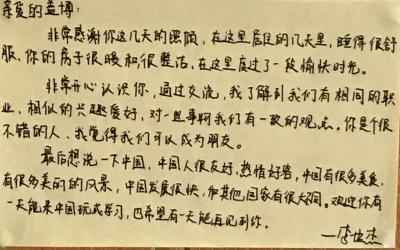 亲爱的盖博:
非常感谢你这几天的照顾,在这里居住的几天里,睡得很舒
服、你的房子很暖和很整洁,在这里度过了一段愉快时光。
非常开心认识你,通过交流,我了解到我们有相同的职
业,相似的兴趣爱好,对一些事物我们有一致的观点。你是个很
不错的人、我觉得我们可以成为朋友。
最后想说一下中国,中国人很友好,热情好客,中国有很多美食,
有很多美丽的风景,中国发展很快,和其他国家有很大不同。欢迎你有
一天能来中国玩或学习,也希望有一天能再见到你。
——李 杰